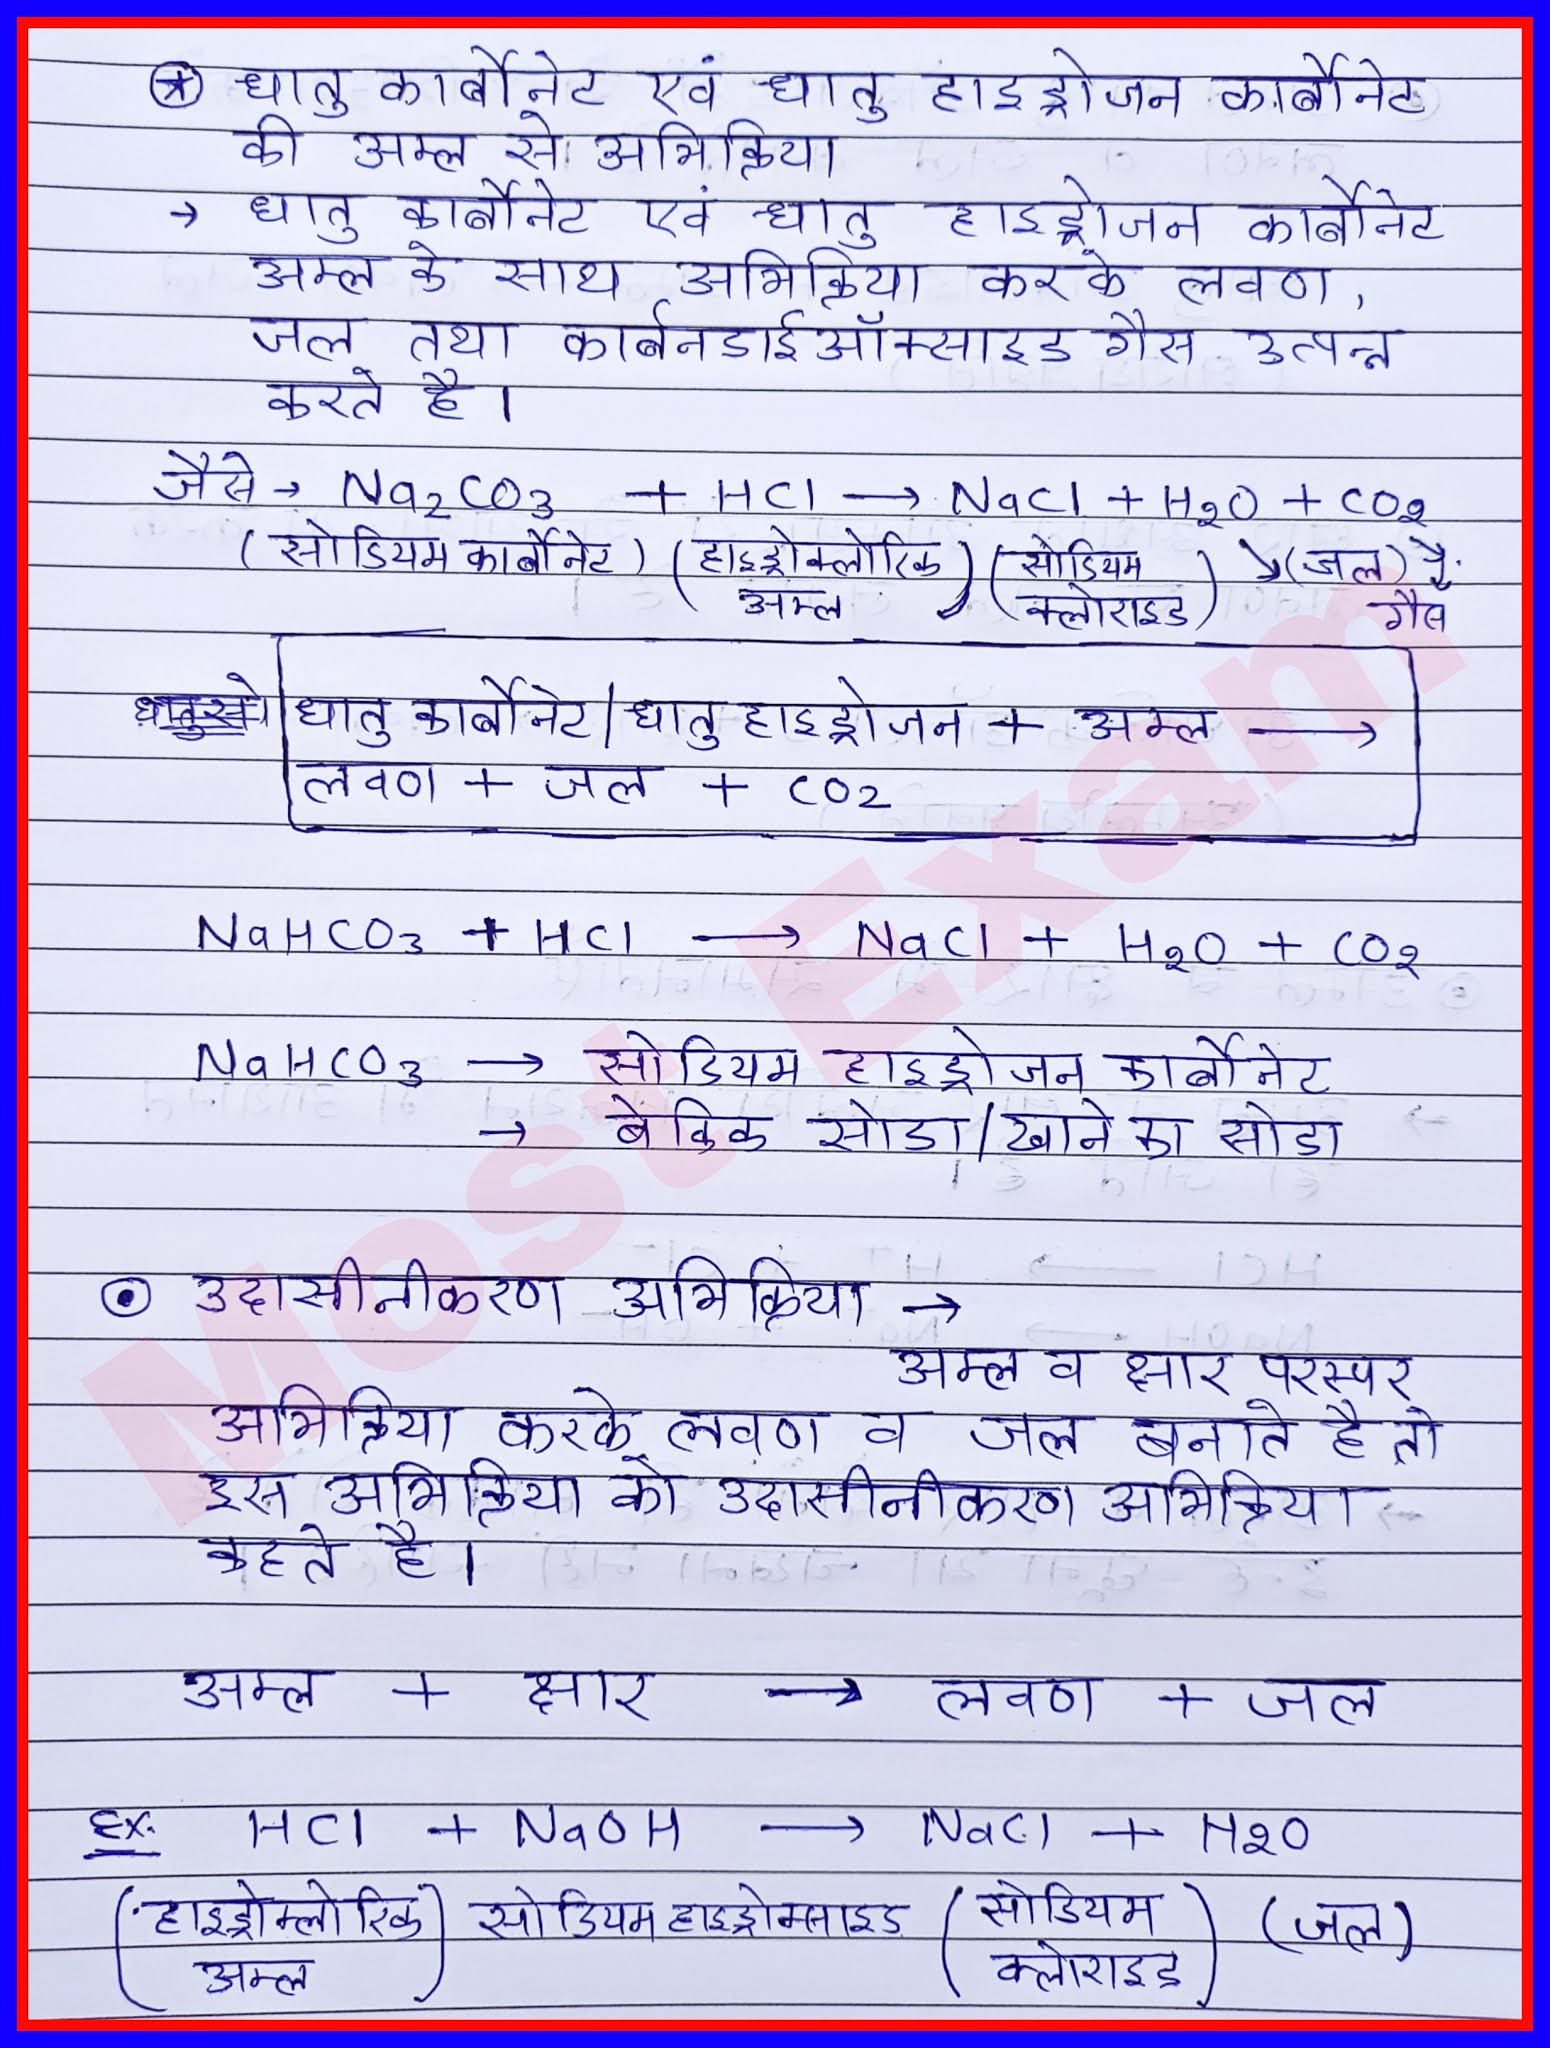 ⊛ धातु कार्बोनेट एवं धातु हाइड्रोजन कार्बोनेट
की अम्ल से अभिक्रिया
→ धातु कार्बोनेट एवं धातु हाइड्रोजन कार्बोनेट
अम्ल के साथ अभिक्रिया करके लवण,
जल तथा कार्बनडाईऑक्साइड गैस उत्पन्न
करते है।
जैसे → Na2CO3 + HCl → NaCl + H2O + CO2
(सोडियम कार्बोनेट) (हाइड्रोक्लोरिक (सोडियम (जल)
अम्ल) क्लोराइड) गैस
धातु कार्बोनेट/धातु हाइड्रोजन + अम्ल →
लवण + जल + CO2
NaHCO3 + HCl → NaCl + H2O + CO2
NaHCO3 → सोडियम हाइड्रोजन कार्बोनेट
→ बेकिक सोडा/खाने का सोडा
⊙ उदासीनीकरण अभिक्रिया →
अम्ल व क्षार परस्पर
अभिक्रिया करके लवण व जल बनाते है तो
इस अभिक्रिया को उदासीनीकरण अभिक्रिया
कहते है।
अम्ल + क्षार → लवण + जल
Ex. HCl + NaOH → NaCl + H2O
(हाइड्रोक्लोरिक) सोडियम हाइड्रोक्साइड (सोडियम (जल)
अम्ल क्लोराइड)
Most Exam